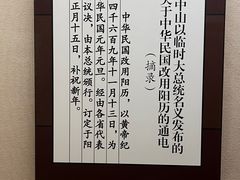 中山以临时大总统名义发布的
关于中华民国改用阳历的通电
(摘录)
中华民国改用阳历，以黄帝纪
四千六百九年十一月十三日，为
华民国元年元旦。经由各省代表
议决，由本总统颁行。订定于阳
正月十五日，补祝新年。